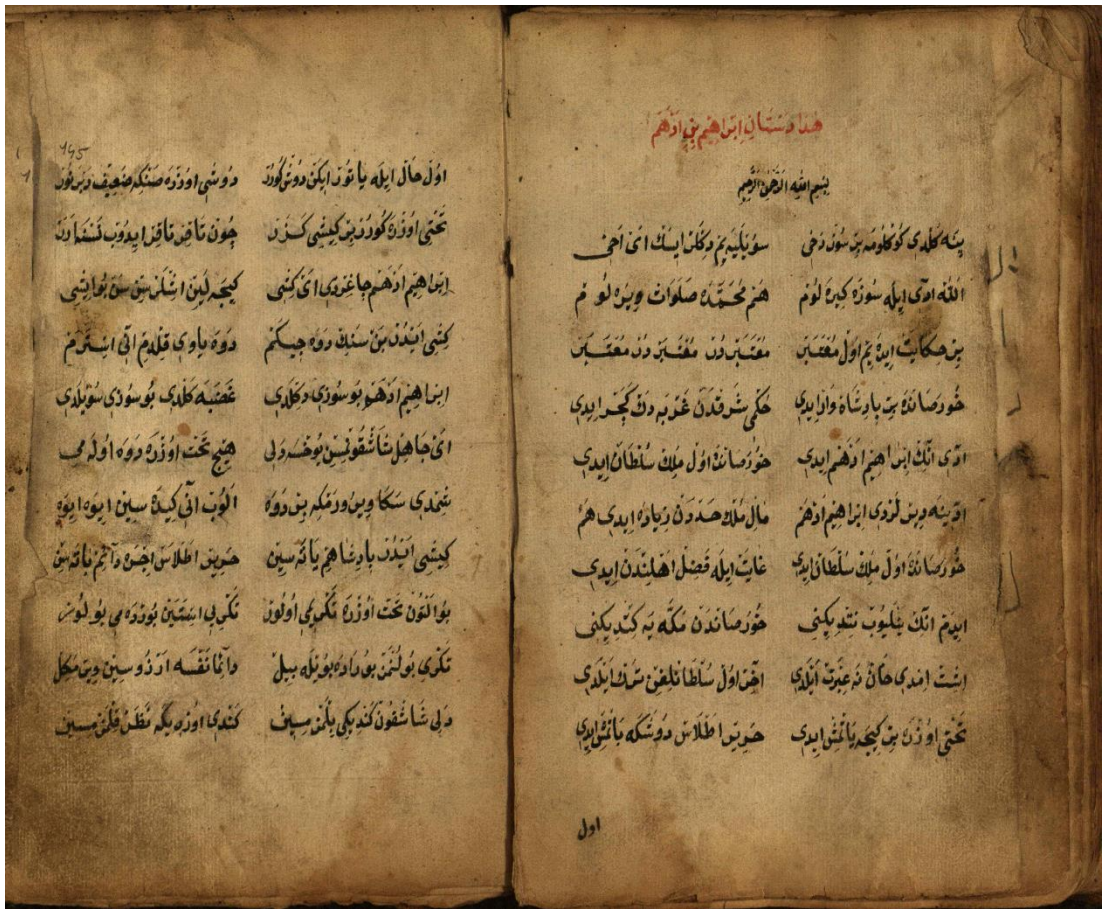 هذا دستان ابراهيم بن ادهم
بسم الله الرحمن الرحيم
ينه كلدي كوكلومه بر سوز دخي سويليه يم دكلر ايسك اى اخي
الله ادى ايله سوزه كيره لوم هم محمده صلوات ويره لوم
بر حكايت ايده يم اول مغتبر معتبر در معتبر در معتبر
خورصانده بر پادشاه وار ايدي حكمى شرقدن غربه دك كچر ايدي
ادى انك ابراهيم ادهم ايدي خورصانده اول ملك سلطان ايدي
ادينه ديرلردى ابراهيم ادهم مال ملك حددن زياده ايدي هم
خورصانده اول ملك سلطان ايدي غايت ايله فضل اهلندن ايدي
ايدم انك نيليوب نتديكنى خورصاندن مكه يه كتديكنى
اشت امدي خان نه عبرت ايلدي اخر اول سلطانلغن ترك ايلدي
تختى اوزره بر كيجه ياتمش ايدي حرير اطلاس دوشكه ياتمش ايدي
اول
145
اول حال ايله ياتور ايكن دوش كورر دوشى اوزره صنكه ضعيف
تختى اوزره كورر بر كيشى كزر چون تاقر تاقر ايدوب
ابراهيم ادهم چاغردى اى كشى كيجه لين اشلرسن سن بو ايشى
كشى ايدر بن سنك دوه جيكم دوه ياوى قلدم انى استرم
ابراهيم ادهم بو سوزى دكلدي غضبه كلدي بو سوزى سويلدي
اى جاهل شاشقونسن يوخسه دلى هيچ تخت اوزره دوه اوله مي
شمدي سكا ويررمكه بر دوه الوب انى كيده سين ايوه ايوه
كيشى ايدر پادشاهم ياته سين حرير اطلاس اچره دائم ياته سن
بو التون تخت اوزره تكرى مي اولور تكرى بي استين بوردهمي بولور
تكرى بولنمز بوراده بويله بيل دائما نفسه ارزوسين وير مكل
دلى شاشقون كنديكى بلمزميسين كندي اوزيكه نظر قلمزميسين